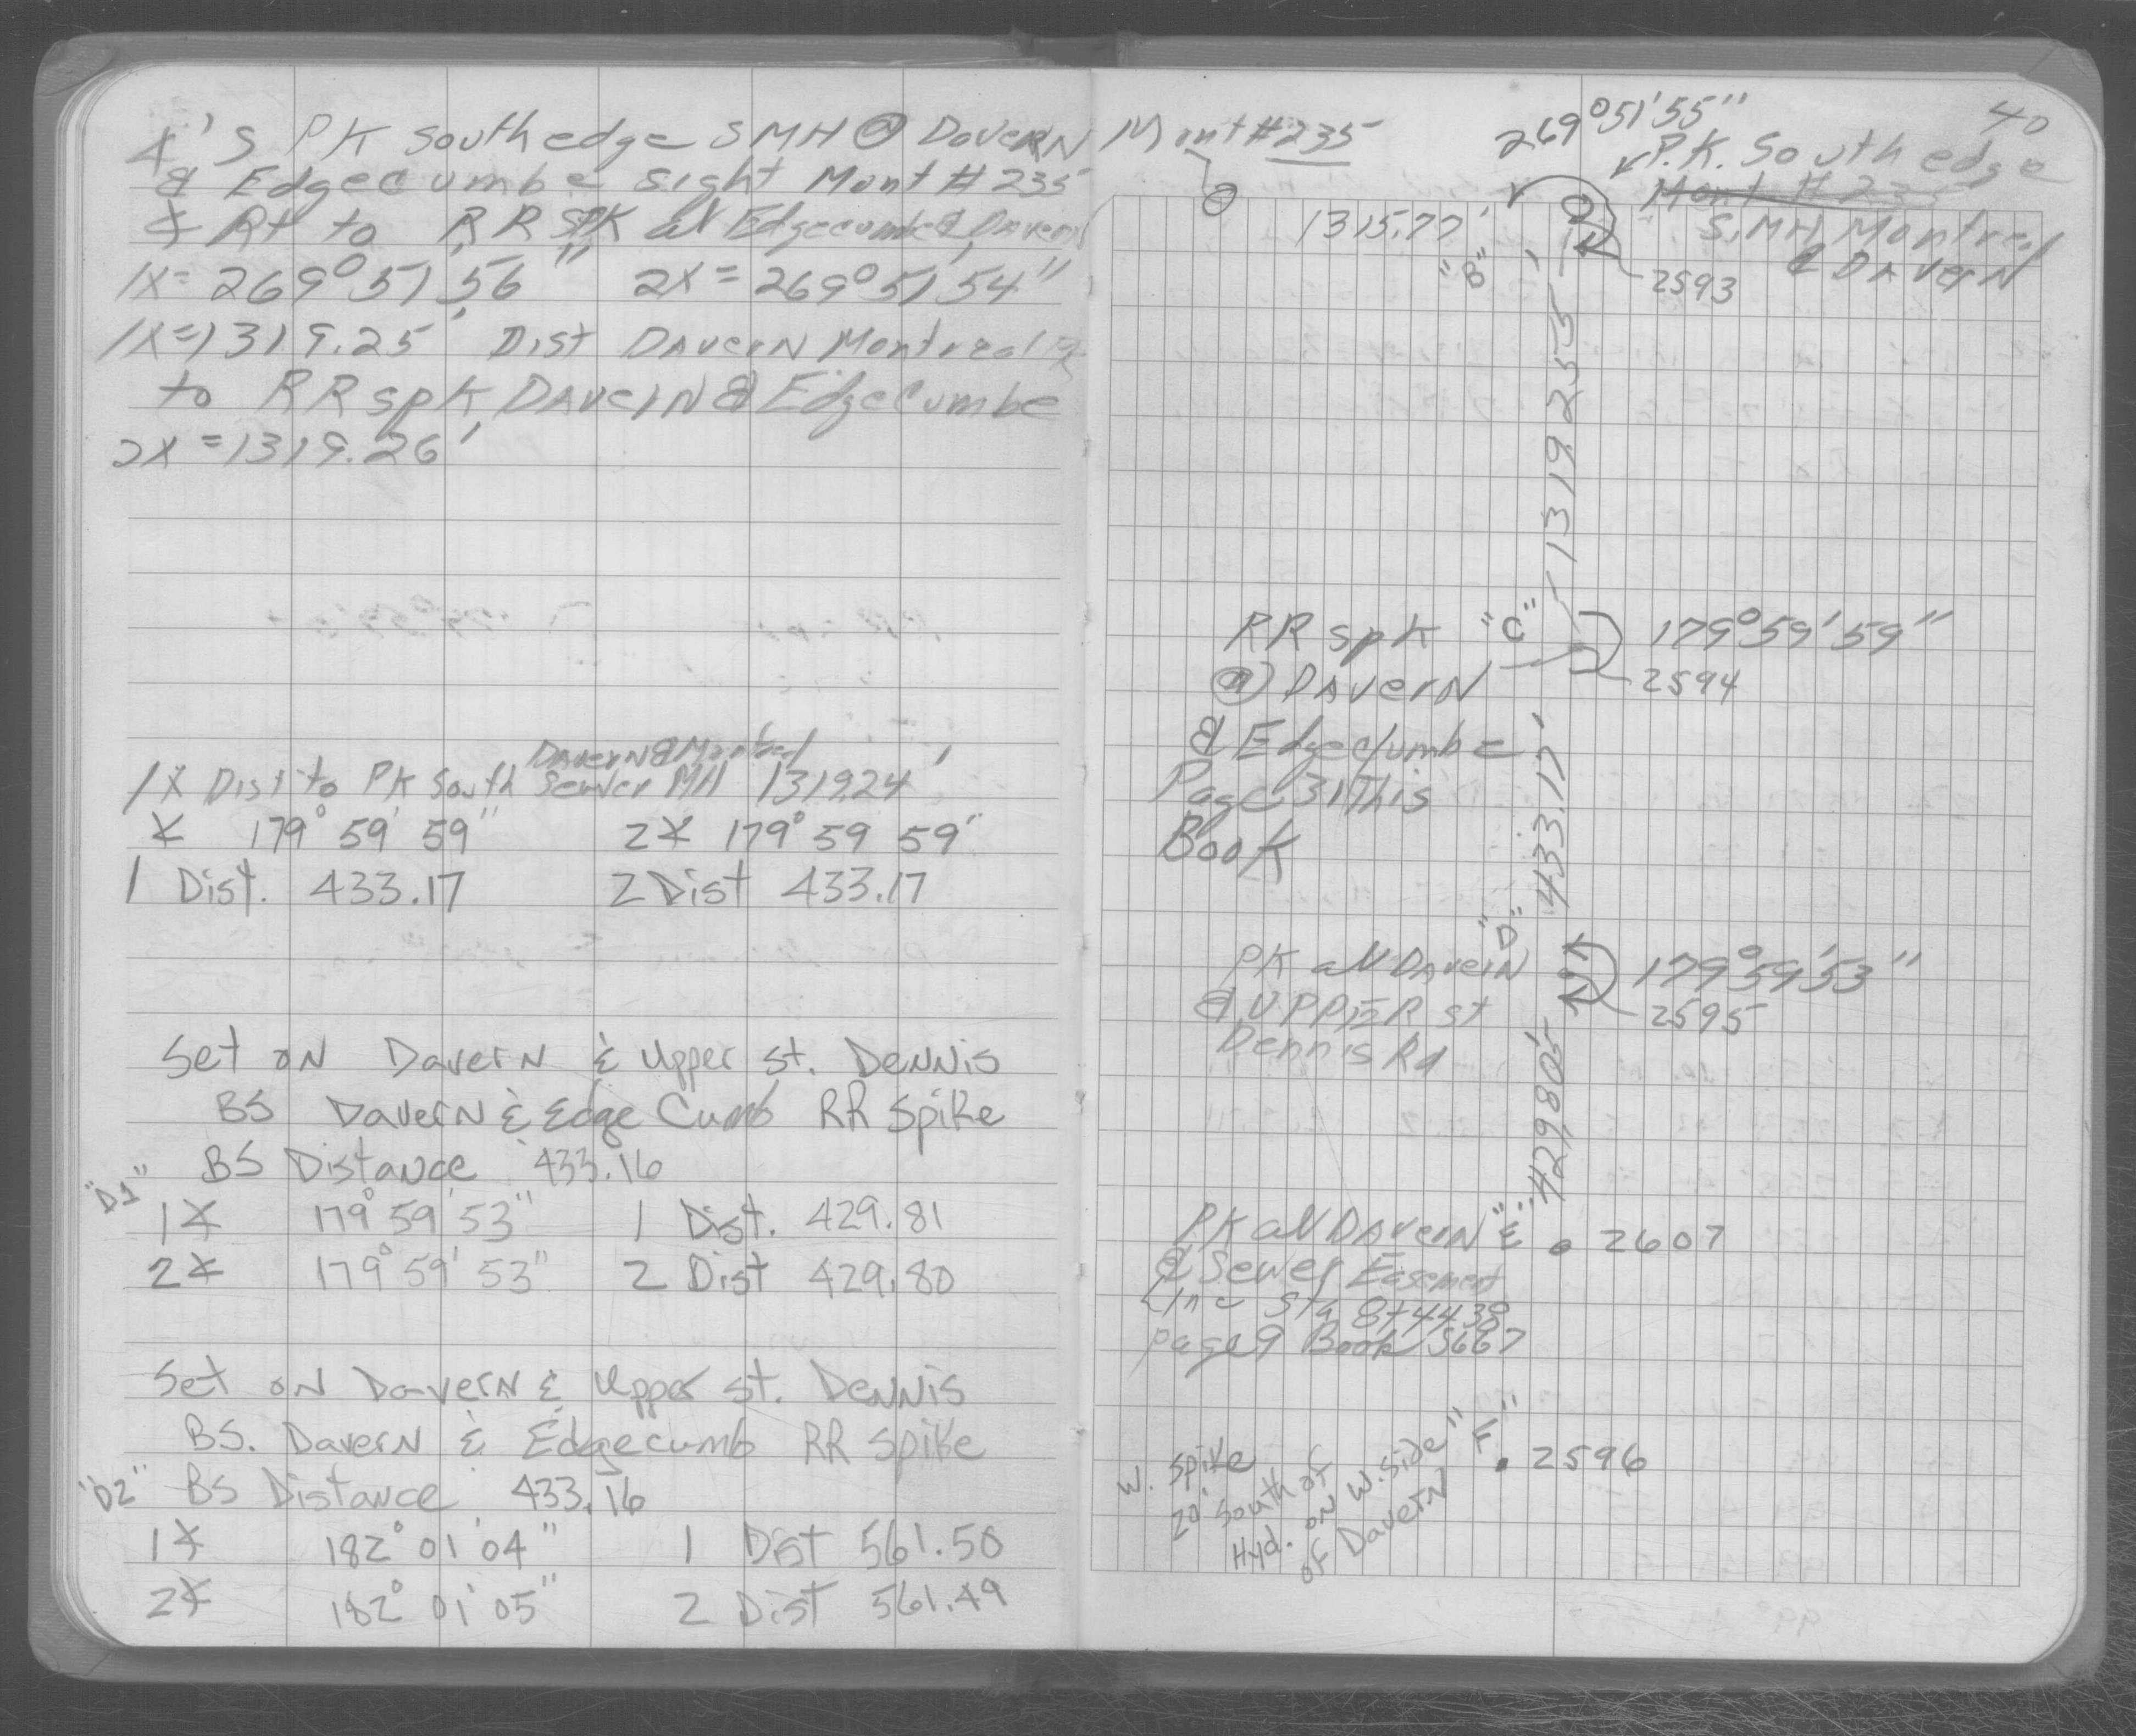 ∠'s PK South edge SMH @ Davern
& Edgecumbe sight Mont # 235
∠ Rt to RR SPK at Edgecumbe & Davern
1X= 269°51'56" 2X= 269°51'54"
1X=1319.25' Dist Davern Montreal
to RR spk, Davern & Edgecumbe
2X=1319.26'
Davern & Montreal
1X Dist to PK South Sewer MH 1319.24'
∠ 179° 59' 59" 2∠ 179° 59 59"
1 Dist. 433.17 2 Dist 433.17
Set on Davern & Upper St. Dennis
BS Davern & Edge Cumb RR Spike
BS Distance 433.16
"D1"
1∠ 179° 59' 53" 1 Dist. 429.81
2∠ 179° 59' 53" 2 Dist 429.80
Set on Davern & Upper St. Dennis
BS. Davern & Edgecumb RR Spike
"D2" BS Distance 433.16
1∠ 182° 01' 04" 1 Dist 561.50
2∠ 182° 01' 05" 2 Dist 561.49
40
Mont #235
269°51'55"
P.K. South edge
Mont # 235
S.MH Montreal
& Davern
1315.77'
"B"
2593
1319.255'
RR spk "C"
179°59'59"
@ Davern
2594
& Edgecumbe
Page 31 This
Book
433.17'
"D"
PK at Davern
179°59'53"
& UPPER St
2595
Dennis Rd
429.805'
PK at Davern "E" 2607
& Sewer Easement
Line Sta 8+44.38
page 9 Book 5667
W. Spike
20' South of
Hyd. on W. Side
of Davern
"F" 2596